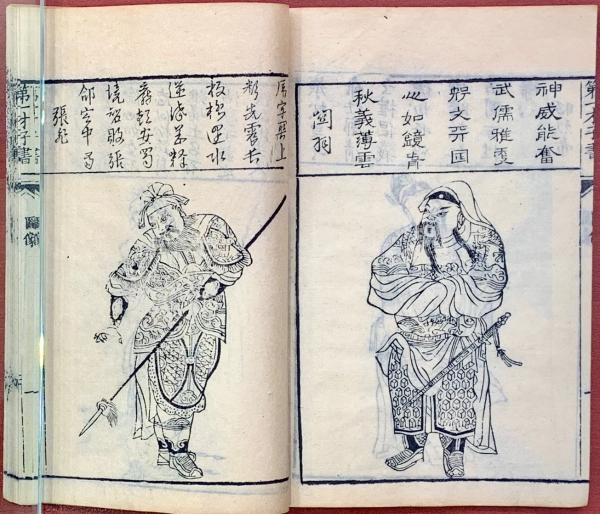 第一才子書
神威能奮
武儒雅更
知文天日
心如鏡春
秋義薄雲
関羽
虎牢関上
聲先震長
坂橋邊水
逆流義釋
嚴顏安蜀
境智欺張
郃定中州
張飛
第一才子書
圖像
一